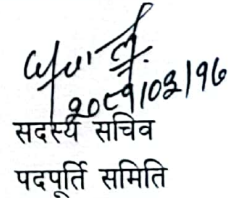 २०८१/०३/१६
सदस्य सचिव
पदपूर्ति समिति